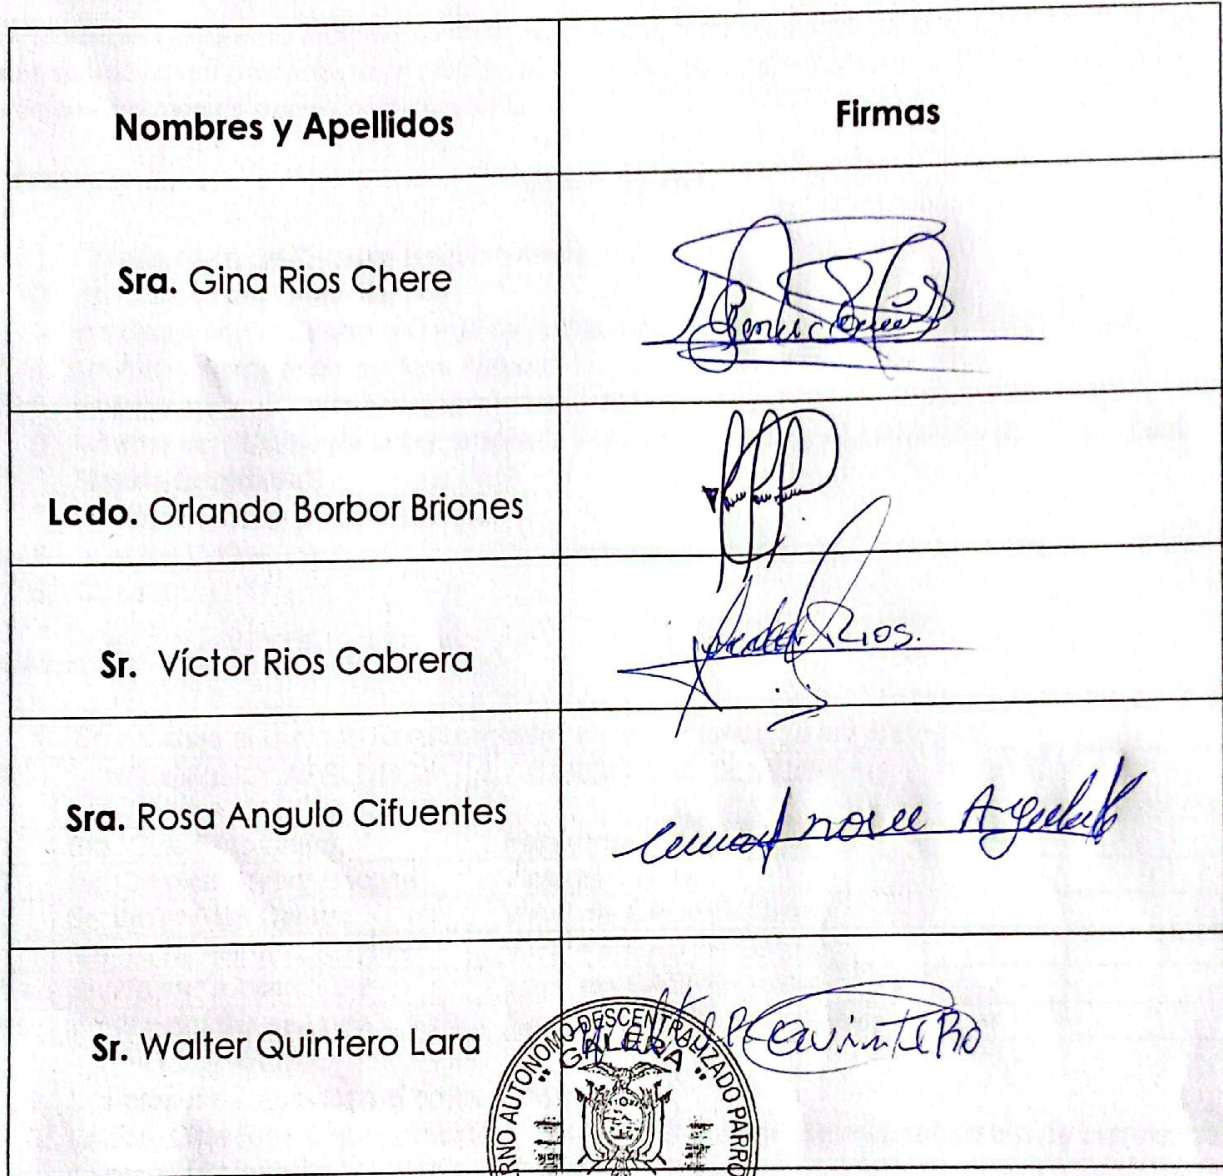 Nombres y Apellidos
Firmas
Sra. Gina Rios Chere
Lcdo. Orlando Borbor Briones
Sr. Víctor Rios Cabrera
Rios.
Sra. Rosa Angulo Cifuentes
Angulo
Sr. Walter Quintero Lara
Quintero
AUTONOMO DESCENTRALIZADO
" GALERA "